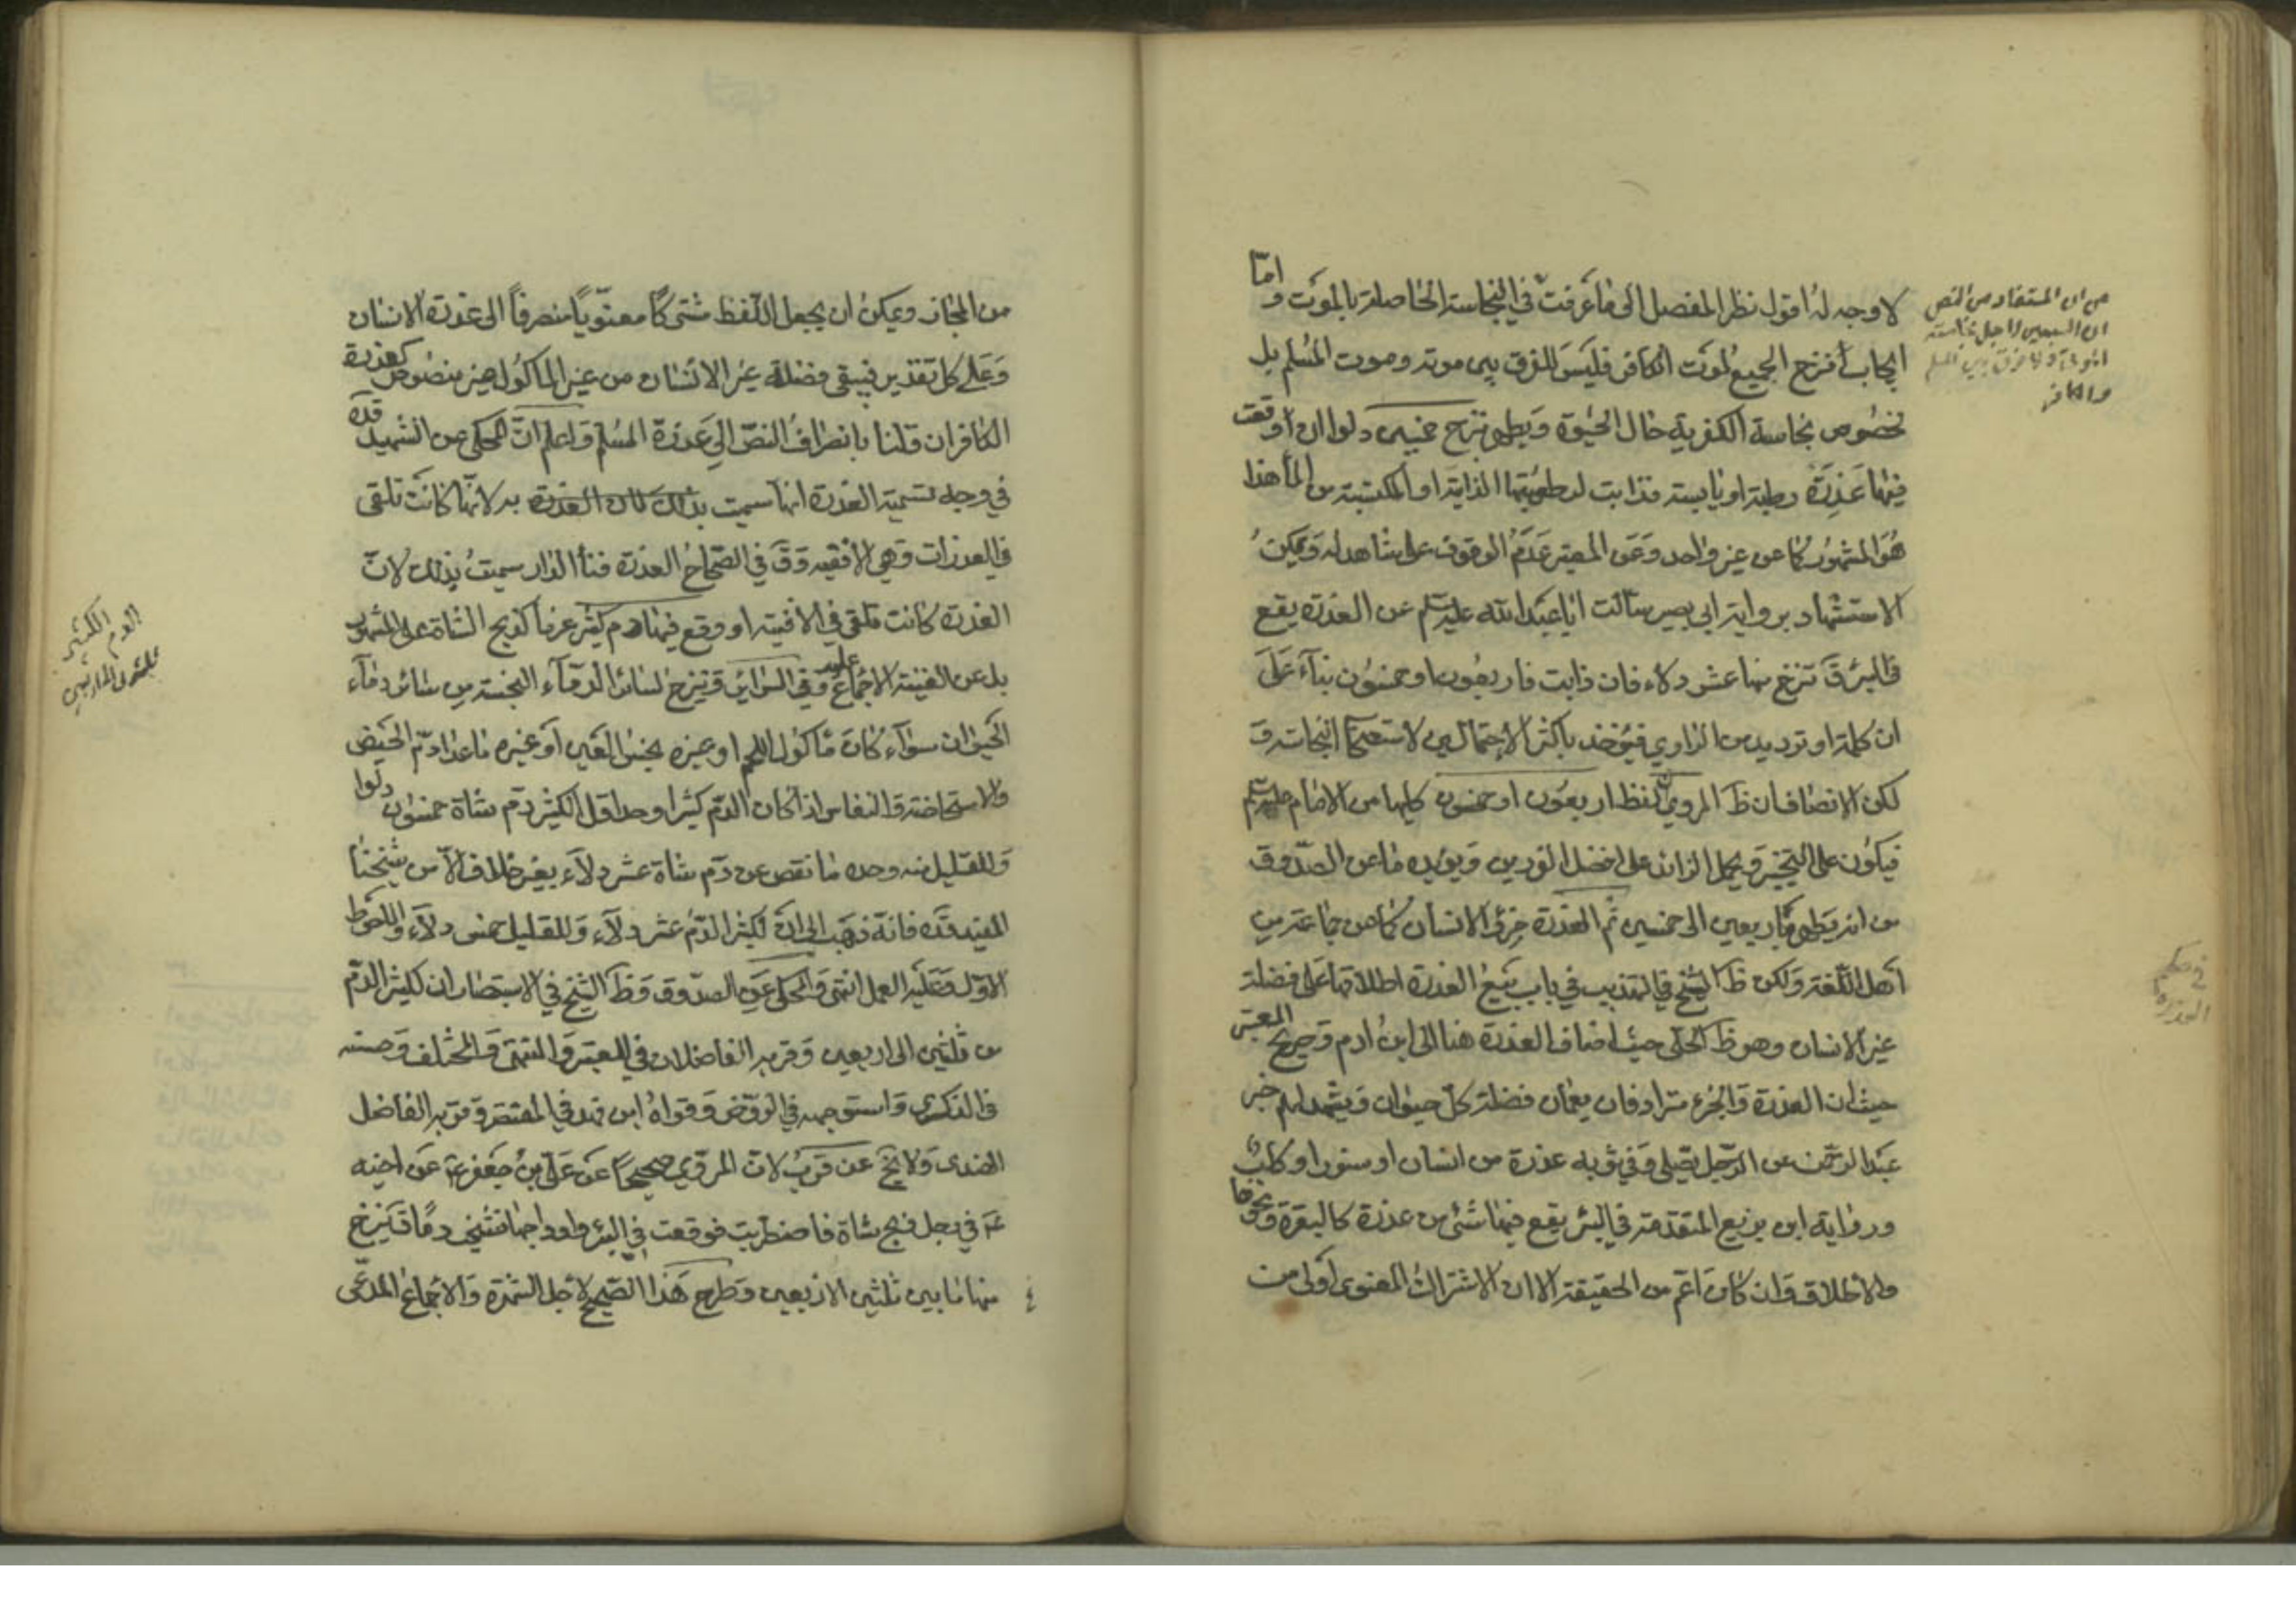 لا وجه له اقول نظر المفصل الى ما عرفت في النجاسة الحاصلة بالموت و اما
ايجاب نزح الجميع لموت الكافر فليس للفرق بين موته وموت المسلم بل
لخصوص نجاسة الكفرية حال الحيوة ويطهر بنزح خمسين دلوا ان وقعت
فيها عذرة رطبة او يابسة فذابت لرطوبتها الذاتية او المكتسبة من الماء هذا
هو المشهور كما عن غير واحد وعن المعتبر عدم الوقوف على شاهد له ويمكن
الاستشهاد برواية ابي بصير سالت ابا عبد الله عليه السلم عن العذرة يقع
في البئر ق تنزح منها عشر دلاء فان ذابت فاربعون او خمسون بناء على
ان كلمة او ترديد من الراوي فيؤخذ باكثر الاحتمالين لاستصحاب النجاسة و
لكن الانصاف ان ظ المروي لفظ اربعون او خمسون كليهما من الامام عليه السلم
فيكون على التخيير ويحمل الزائد على افضل الفردين ويؤيده ما عن الصدوق
من انه يطهر باربعين الى خمسين ثم العذرة خرء الانسان كما عن جماعة من
اهل اللغة ولكن ظ الشيخ في التهذيب في باب بيع العذرة اطلاقها على فضلة
غير الانسان وهو ظ الحلي حيث اضاف العذرة هنا الى ابن ادم وصريح المعتبر
حيث ان العذرة والخرء مترادفان يعمان فضلة كل حيوان ويشهد لهم خبر
عبد الرحمن عن الرجل يصلي وفي ثوبه عذرة من انسان او سنور او كلب
ورواية ابن بزيع المتقدمة في البئر يقع فيها شئ من عذرة كالبعرة ونحوها
والاطلاق وان كان اعم من الحقيقة الا ان الاشتراك المعنوي اولى من
من ان المستفاد من النص
ان السبعين لاجل نجاسته
الموتية ولا فرق بين المسلم
والكافر
في حكم
العذرة
من المجاز ويمكن ان يجعل اللفظ مشتركا معنويا منصرفا الى عذرة الانسان
وعلى كل تقدير فيبقى فضلة غير الانسان من غير الماكول غير منصوص كعذرة
الكافر ان قلنا بانصراف النص الى عذرة المسلم واعلم ان المحكي عن الشهيد قده
في وجه تسمية العذرة انها سميت بذلك لان العذرة به لانها كانت تلقى
في العذرات وهي الافنية وق في الصحاح العذرة فناء الدار سميت بذلك لان
العذرة كانت تلقى في الافنية او وقع فيها دم كثير عرفا كذبح الشاة على المشهور
بل عن الغنية الاجماع عليه وفي السرائر وينزح لسائر الدماء النجسة من سائر دماء
الحيوان سواء كان ماكول اللحم او غيره نجس العين او غيره ما عدا دم الحيض
والاستحاضة والنفاس اذا كان الدم كثيرا وحد اقل الكثير دم شاة خمسون دلوا
وللقليل منه وحده ما نقص عن دم شاة عشر دلاء بغير خلاف الا من شيخنا
المفيد قده فانه ذهب الى ان لكثير الدم عشر دلاء وللقليل خمس دلاء والاحوط
الاول وعليه العمل انتهى والمحكي عن الصدوق وظ الشيخ في الاستبصار ان لكثير الدم
من ثلثين الى اربعين وقربه الفاضلان في المعتبر والمنتهى والمختلف وحسنه
في الذكرى واستوجهه في الروض وقواه ابن فهد في المقتصر وقربه الفاضل
الهندي ولا يخ عن قرب لان المروي صحيحا عن علي بن جعفر ع عن اخيه
ع في رجل ذبح شاة فاضطربت فوقعت في البئر واوداجها تشخب دما ق ينزح
منها ما بين ثلثين الى اربعين وطرح هذا الصحيح لاجل الشهرة والاجماع المدعى
الدم الكثير